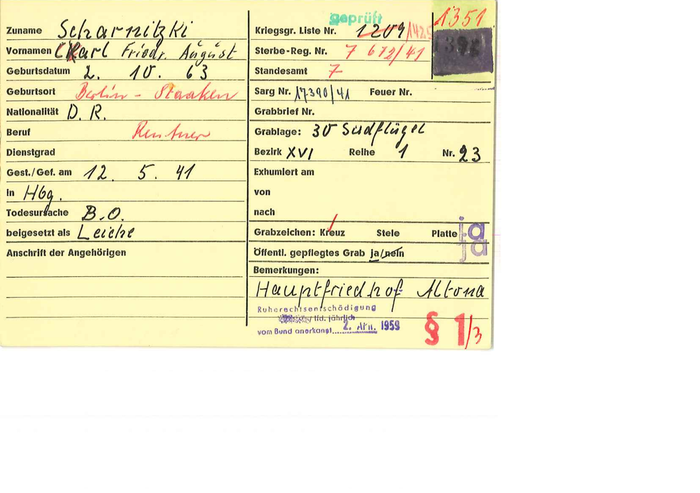 geprüft
Zuname Scharnitzki
Vornamen Karl Friedr. August
Geburtsdatum 2. 10. 63
Geburtsort Berlin - Staaken
Nationalität D. R.
Beruf Rentner
Dienstgrad
Gest./Gef. am 12. 5. 41
In Hbg.
Todesursache B.O.
beigesetzt als Leiche
Anschrift der Angehörigen
Kriegsgr. Liste Nr. 1209
1351
Sterbe-Reg. Nr. 7 672/41
Standesamt 7
Sarg Nr. 17390/41 Feuer Nr.
Grabbrief Nr.
Grablage: 30 Südflügel
Bezirk XVI Reihe 1 Nr. 23
Exhumiert am
von
nach
Grabzeichen: Kreuz Stele Platte ja
ja
Öffentl. gepflegtes Grab ja/nein
Bemerkungen:
Hauptfriedhof Altona
Ruherechtsentschädigung
lfd. jährlich
vom Bund anerkannt 2. APR. 1959
§ 1/3